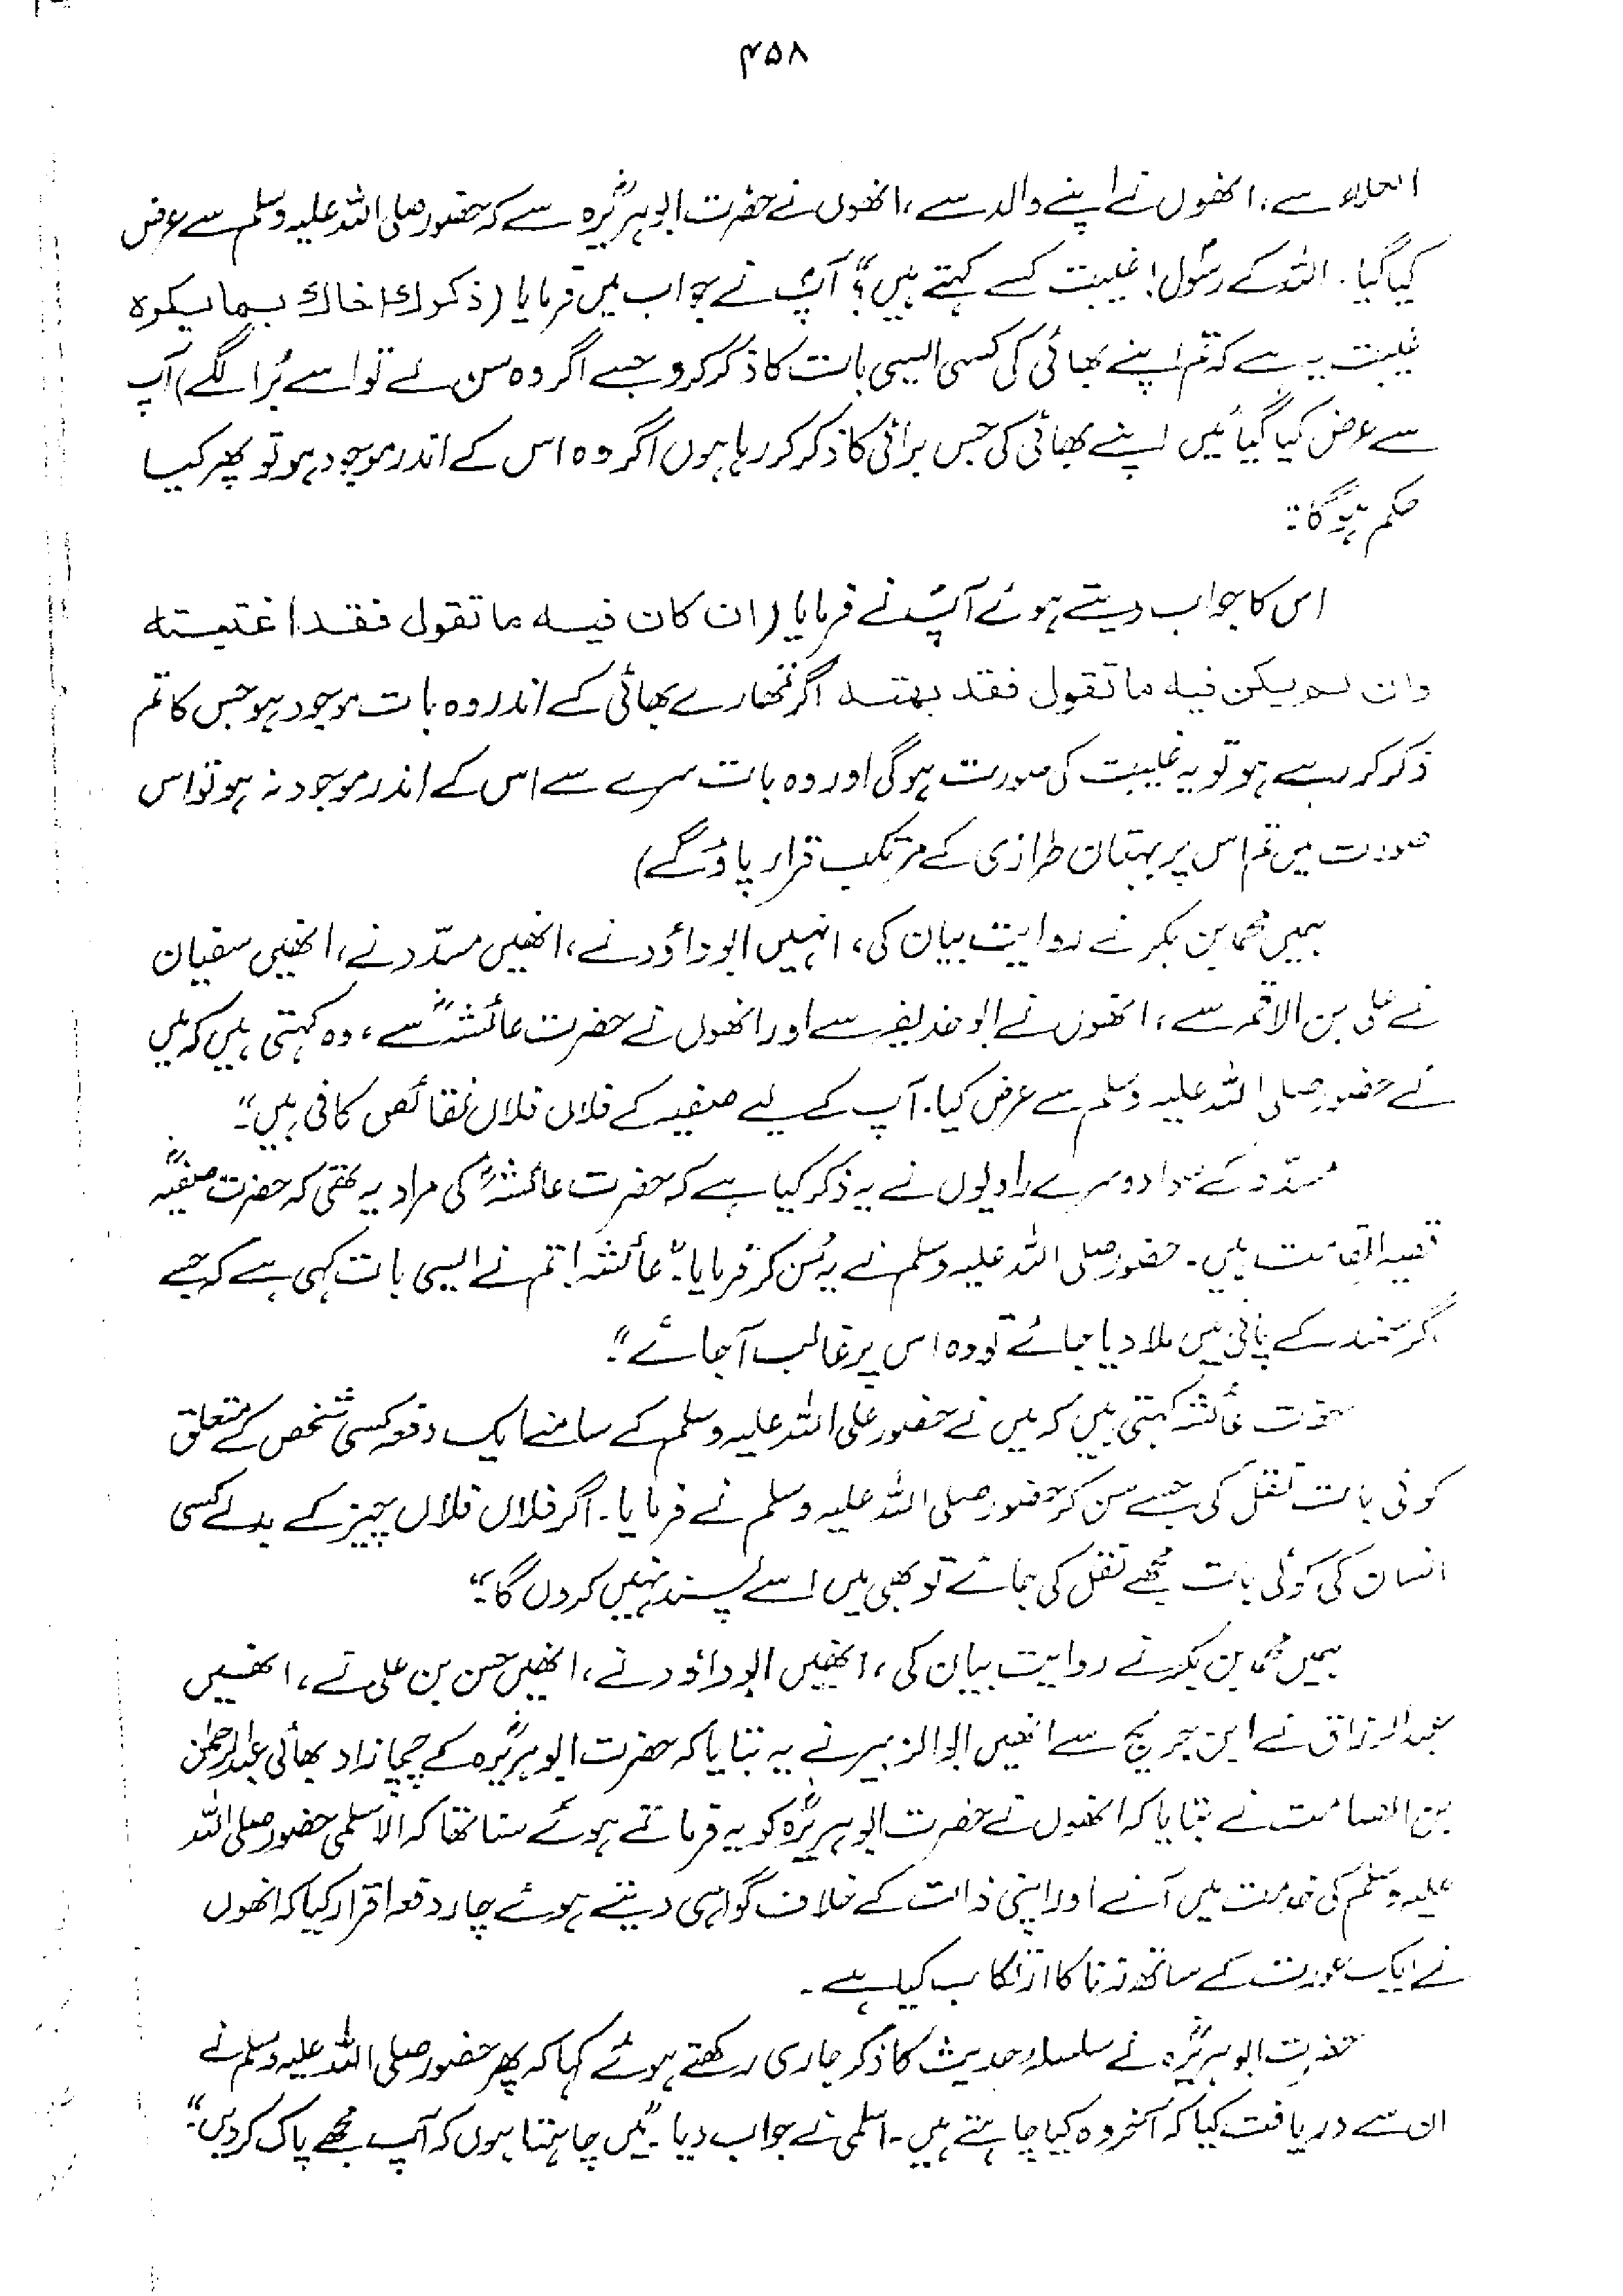 ۴۵۸
العلاء سے، انھوں نے اپنے والد سے، انھوں نے حضرت ابوہریرہؓ سے کہ حضور صلی اللہ علیہ وسلم سے عرض
کیا گیا۔ اللہ کے رسول! غیبت کسے کہتے ہیں؟" آپؐ نے جواب میں فرمایا (ذکرک اخاک بما یکرہ
غیبت یہ ہے کہ تم اپنے بھائی کی کسی ایسی بات کا ذکر کرو جسے اگر وہ سن لے تو اسے بُرا لگے) آپ
سے عرض کیا گیا میں اپنے بھائی کی جس برائی کا ذکر کر رہا ہوں اگر وہ اس کے اندر موجود ہو تو پھر کیا
حکم ہوگا؟
اس کا جواب دیتے ہوئے آپؐ نے فرمایا (ان کان فیہ ما تقول فقد اغتبتہ
وان لم یکن فیہ ما تقول فقد بھتہ اگر تمھارے بھائی کے اندر وہ بات موجود ہو جس کا تم
ذکر کر رہے ہو تو یہ غیبت کی صورت ہوگی اور وہ بات سرے سے اس کے اندر موجود نہ ہو تو اس
صورت میں تم اس پر بہتان طرازی کے مرتکب قرار پاؤ گے)
ہمیں محمد بن بکر نے روایت بیان کی، انہیں ابوداؤد نے، انھیں مسدّد نے، انھیں سفیان
نے علی بن الاقمر سے، انھوں نے ابو حذیفہ سے اور انھوں نے حضرت عائشہؓ سے، وہ کہتی ہیں کہ میں
نے حضور صلی اللہ علیہ وسلم سے عرض کیا۔ آپ کے لیے صفیہ کے فلاں فلاں نقائص کافی ہیں"۔
مسدّد کے سوا دوسرے راویوں نے یہ ذکر کیا ہے کہ حضرت عائشہؓ کی مراد یہ تھی کہ حضرت صفیہؓ
قصیر القامت ہیں۔ حضور صلی اللہ علیہ وسلم نے یہ سُن کر فرمایا۔" عائشہ! تم نے ایسی بات کہی ہے کہ جسے
اگر سمندر کے پانی میں ملا دیا جائے تو وہ اس پر غالب آجائے"۔
حضرت عائشہ کہتی ہیں کہ میں نے حضور صلی اللہ علیہ وسلم کے سامنے ایک دفعہ کسی شخص کے متعلق
کوئی بات نقل کی جسے سن کر حضور صلی اللہ علیہ وسلم نے فرمایا۔ اگر فلاں فلاں چیز کے بدلے کسی
انسان کی کوئی بات مجھے نقل کی جائے تو بھی میں اسے پسند نہیں کروں گا"۔
ہمیں محمد بن بکر نے روایت بیان کی، انھیں ابوداؤد نے، انھیں حسن بن علی نے، انھیں
عبدالرزاق نے ابن جریج سے انھیں ابوالزبیر نے یہ بتایا کہ حضرت ابوہریرہؓ کے چچا زاد بھائی عبدالرحمٰن
بن الصامت نے بتایا کہ انھوں نے حضرت ابوہریرہؓ کو یہ فرماتے ہوئے سنا تھا کہ الاسلمی حضور صلی اللہ
علیہ وسلم کی خدمت میں آئے اور اپنی ذات کے خلاف گواہی دیتے ہوئے چار دفعہ اقرار کیا کہ انھوں
نے ایک عورت کے ساتھ زنا کا ارتکاب کیا ہے۔
حضرت ابوہریرہؓ نے سلسلہ حدیث کا ذکر جاری رکھتے ہوئے کہا کہ پھر حضور صلی اللہ علیہ وسلم نے
ان سے دریافت کیا کہ آخر وہ کیا چاہتے ہیں۔ اسلمی نے جواب دیا۔ "میں چاہتا ہوں کہ آپ مجھے پاک کر دیں"۔